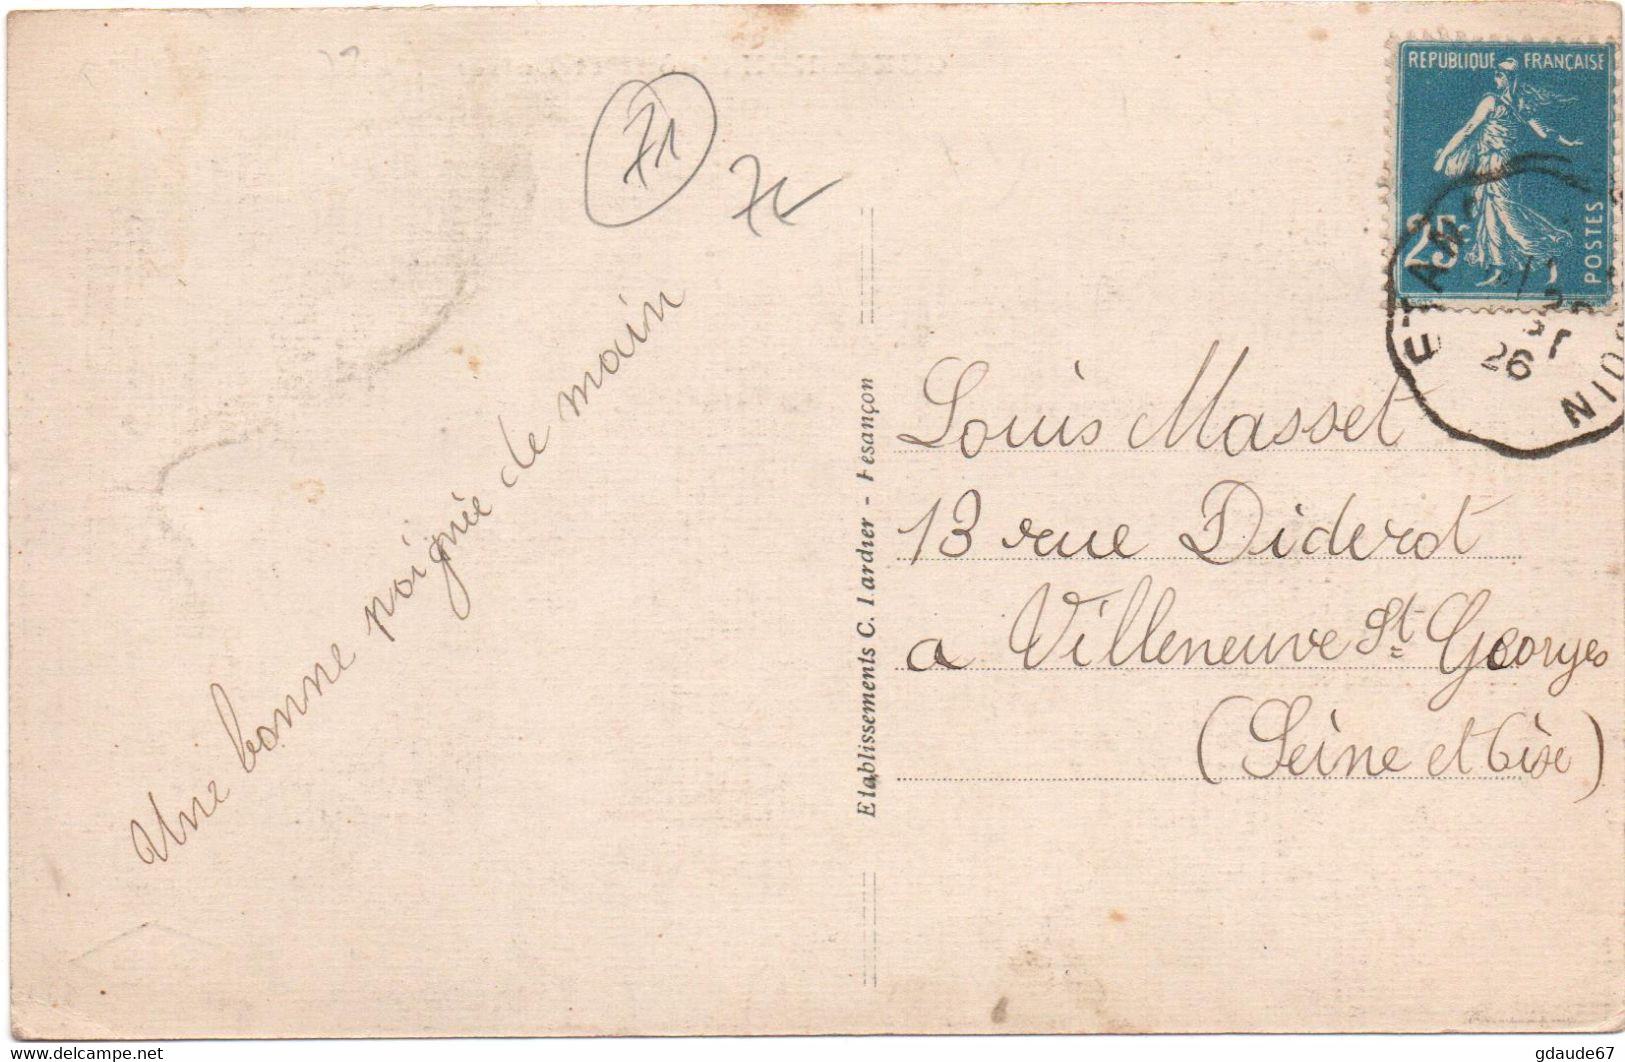 71
REPUBLIQUE FRANÇAISE
25 c
POSTES
ETANG
26
Une bonne poignée de main
Etablissements C. Lardier - Besançon
Louis Masset
13 rue Diderot
a Villeneuve St Georges
(Seine et Oise)
gdaude67
www.delcampe.net